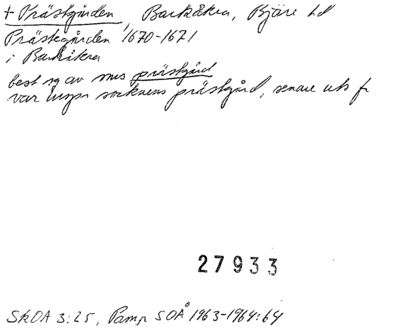 + Prästgården, Barkåkra, Bjäre hd
Prästegården 1670-1671
i Barkåkra
best sg av mus prästgård
var urspr socknens prästgård, senare uts fr
27933
SkOA 3:25, Pamp SOÅ 1963-1964:64